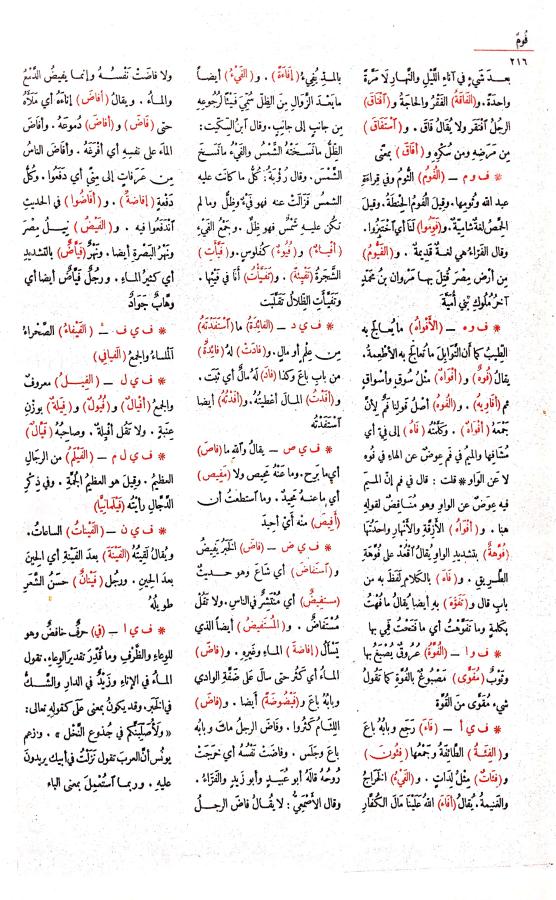 فوم
٢١٦
بعد شيءٍ في آناءِ اللَّيْلِ والنَّهارِ لا مَرَّةً
واحدةً. و(الفَاقَةُ) الفَقْرُ والحَاجَةُ و(افْتَاقَ)
الرجُلُ افتَقَر ولا يُقالُ فَاقَ. و(اسْتَفَاقَ)
من مَرَضِهِ ومن سُكْرِهِ و(أفَاقَ) بمعنًى
* ف و م – (الفُومُ) الثُّومُ وفي قِراءَةِ
عبد الله وثُومِها. وقيلَ الفُومُ الحِنْطةُ. وقيلَ
الحِمَّصُ لغةٌ شَاميَّةٌ. و(فَوِّمُوا) لَنَا أيِ اخْتَبِزُوا.
وقال الفَرَّاءُ هي لغةٌ قديمةٌ. و(الفَيُّومُ)
مِن أرْضِ مِصْرَ قُتِلَ بها مَرْوانُ بنُ محمَّدٍ
آخرُ مُلُوكِ بَنِي أُمَيَّةَ
* ف و ه – (الأَفْوَاهُ) ما يُعالَجُ به
الطِّيبُ كما أنَّ التَّوابِلَ ما تُعالَجُ به الأطْعِمةُ.
يقالُ (فُوهٌ) و(أفْوَاهٌ) مثلُ سُوقٍ وأسْواقٍ
ثم (أفَاوِيهُ). و(الفُوهُ) أصلُ قولِنا فَمٌ لأنَّ
جَمْعَهُ (أفْوَاهٌ). وكلَّمتُهُ (فَاهُ) إلى فِيَّ أي
مُشَافِهًا والميمُ في فَمٍ عِوضٌ عن الهاءِ في فُوهٍ
لا عن الواو * قلت: قال في فم إنَّ الميمَ
فيه عِوضٌ عن الواوِ وهو مُناقِضٌ لقولِهِ
هنا. و(أفْوَاهُ) الأزِقَّةِ والأنهارِ واحدتُها
(فُوَّهَةٌ) بتشديدِ الواوِ يقالُ اقْعُدْ على فُوَّهَةِ
الطَّرِيقِ. و(فَاهَ) بالكلامِ لَفَظَ به من
بابِ قال و(تَفَوَّهَ) به أيضًا يُقالُ ما فُهْتُ
بكلمةٍ وما تَفَوَّهْتُ أي ما فَتَحْتُ فَمِي بها
* ف و ا – (الفُوَّةُ) عُروقٌ يُصْبَغُ بها
وثَوْبٌ (مُفَوًّى) مَصْبُوغٌ بالفُوَّةِ كما تقولُ
شيءٌ مُقَوًّى من القُوَّةِ
* ف ي أ – (فَاءَ) رَجَع وبابُهُ باعَ
و(الفِئَةُ) الطائِفةُ وجَمْعُها (فِئُونَ)
و(فِئَاتٌ) مِثْلُ لِدَاتٍ. و(الفَيْءُ) الخَرَاجُ
والغَنِيمةُ. يُقالُ (أفَاءَ) اللهُ عَلَيْنا مَالَ الكُفَّارِ
بالمدِّ يُفِيءُ (إفَاءَةً). و(الفَيْءُ) أيضًا
ما بَعْدَ الزَّوَالِ من الظِّلِّ سُمِّيَ فَيْئًا لرُجُوعِهِ
من جانِبٍ إلى جانِبٍ. وقال ابنُ السِّكِّيتِ:
الظِّلُّ ما نَسَخَتْهُ الشَّمْسُ والفَيْءُ ما نَسَخَ
الشَّمْسَ. وقال رُؤْبَةُ: كُلُّ ما كانت عليه
الشمسُ فزَالَتْ عنه فهو فَيْءٌ وظِلٌّ وما لم
تكن عليهِ شَمْسٌ فهو ظِلٌّ. وجَمْعُ الفَيْءِ
(أفْيَاءٌ) و(فُيُوءٌ) كفُلُوسٍ. و(فَيَّأتِ)
الشَّجَرةُ (تَفْيِئَةً) و(تَفَيَّأْتُ) أنا في فَيْئِها.
وتَفَيَّأَتِ الظِّلالُ تَقَلَّبَتْ
* ف ي د – (الفَائِدَةُ) ما (اسْتَفَدْتَهُ)
مِن عِلْمٍ أو مالٍ. و(فَادَتْ) لهُ (فَائِدةٌ)
من باب باعَ وكذا (فَادَ) لَهُ مالٌ أي ثَبَتَ.
و(أفَدْتُ) المالَ أعْطَيْتُهُ. و(أفَدْتُهُ) أيضا
اسْتَفَدْتُه
* ف ي ص – يقالُ واللهِ ما (فَاصَ)
أي ما بَرِحَ. وما عَنْهُ مَحِيصٌ ولا (مَفِيصٌ)
أي ما عنهُ مَحِيدٌ. وما استطعتُ أن
(أفِيصَ) منه أيْ أحِيدَ
* ف ي ض – (فَاضَ) الخَبَرُ يَفيضُ
و(اسْتَفَاضَ) أي شاعَ وهو حديثٌ
(مستفيضٌ) أي مُنْتَشِرٌ في الناسِ. ولا تَقُلْ
مُسْتَفَاضٌ. و(المُسْتَفِيضُ) أيضا الذي
يَسْألُ (إفَاضَةَ) الماءِ وغيرِهِ. و(فَاضَ)
الماءُ أي كَثُرَ حتى سالَ على ضَفَّةِ الوادي
وبابُهُ باعَ و(فَيْضُوضَةً) أيضا. و(فاضَ)
اللئَامُ كَثُرُوا. وفاضَ الرجلُ ماتَ وبابُه
باعَ وجَلَس. وفاضَتْ نَفْسُه أي خَرَجَتْ
رُوحُهُ قالَهُ أبو عُبَيدٍ وأبو زَيدٍ والفَرَّاءُ.
وقال الأصْمَعِيُّ: لا يُقالُ فاضَ الرجلُ
ولا فاضَتْ نَفْسُهُ وإنما يَفيضُ الدَّمْعُ
والماءُ. ويقالُ (أفاضَ) إناءَهُ أي مَلأَهُ
حتى (فَاضَ) و(أفاضَ) دُمُوعَهُ. وأفاضَ
الماءَ على نفسِهِ أي أفْرَغَهُ. وأفاضَ الناسُ
مِن عَرَفاتٍ إلى مِنًى أي دَفَعُوا. وكلُّ
دَفْعَةٍ (إفَاضَةٌ). و(أفَاضُوا) في الحديثِ
اندَفَعُوا فيه. و(الفَيْضُ) نِيلُ مِصْرَ
ونَهْرُ البَصْرةِ أيضا. ونهرٌ (فَيَّاضٌ) بالتشديدِ
أي كثيرُ الماءِ. ورجُلٌ فَيَّاضٌ أيضا أي
وهَّابٌ جَوَادٌ
* ف ي ف – (الفَيْفَاءُ) الصَّحْراءُ
المَلْساءُ والجمعُ (الفَيَافِي)
* ف ي ل – (الفِيلُ) معروفٌ
والجمعُ (أفْيَالٌ) و(فُيُولٌ) و(فِيَلَةٌ) بوزنِ
عِنَبَةٍ. ولا تَقُل أفْيِلَةٌ. وصاحبُهُ (فَيَّالٌ)
* ف ي ل م – (الفَيْلَمُ) من الرجالِ
العظيمُ. وقيلَ هو العظيمُ الجُمَّةِ. وفي ذِكْرِ
الدَّجَّالِ رأيتُه (فَيْلَمَانِيًّا)
* ف ي ن – (الفَيْنَاتُ) الساعاتُ.
ويُقالُ لَقِيتُهُ (الفَيْنَةَ) بعدَ الفَيْنةِ أي الحِينَ
بعدَ الحِينِ. ورجُل (فَيْنَانٌ) حَسَنُ الشَّعَرِ
طويلُهُ
* ف ي ا – (في) حرفٌ خافضٌ وهو
للوِعاءِ والظَّرْفِ وما قُدِّرَ تقديرَ الوِعاءِ. تقول
الماءُ في الإناءِ وزَيْدٌ في الدارِ والشَّكُّ
في الخَبَرِ. وقد يكونُ بمعنى على كقولِهِ تعالى:
« ولأُصَلِّبَنَّكُمْ في جُذوعِ النَّخْلِ ». وزعم
يونُسُ أنَّ العربَ تقول نَزَلْتُ في أبيك يريدون
عليهِ. وربما استُعْمِلَ بمعنى الباءِ